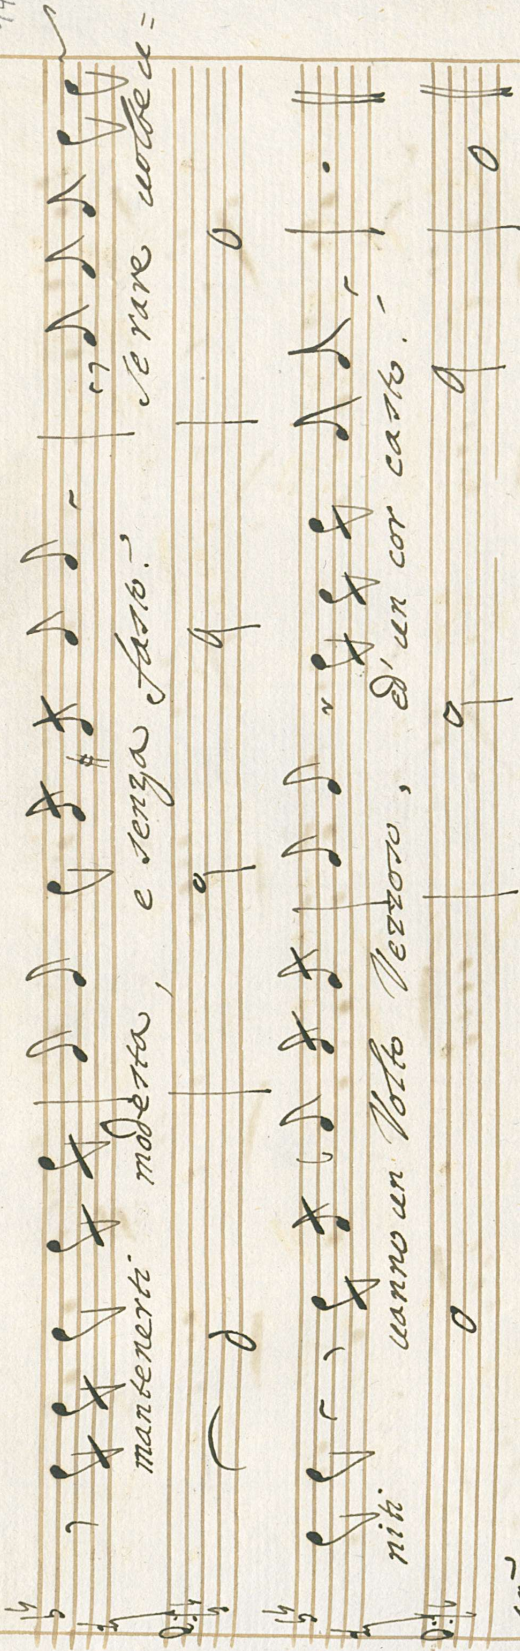 mantenerti modesta, e senza fasto. Se rare uolte u=
niti uanno un Volto Vezzoso, ed' un cor casto.